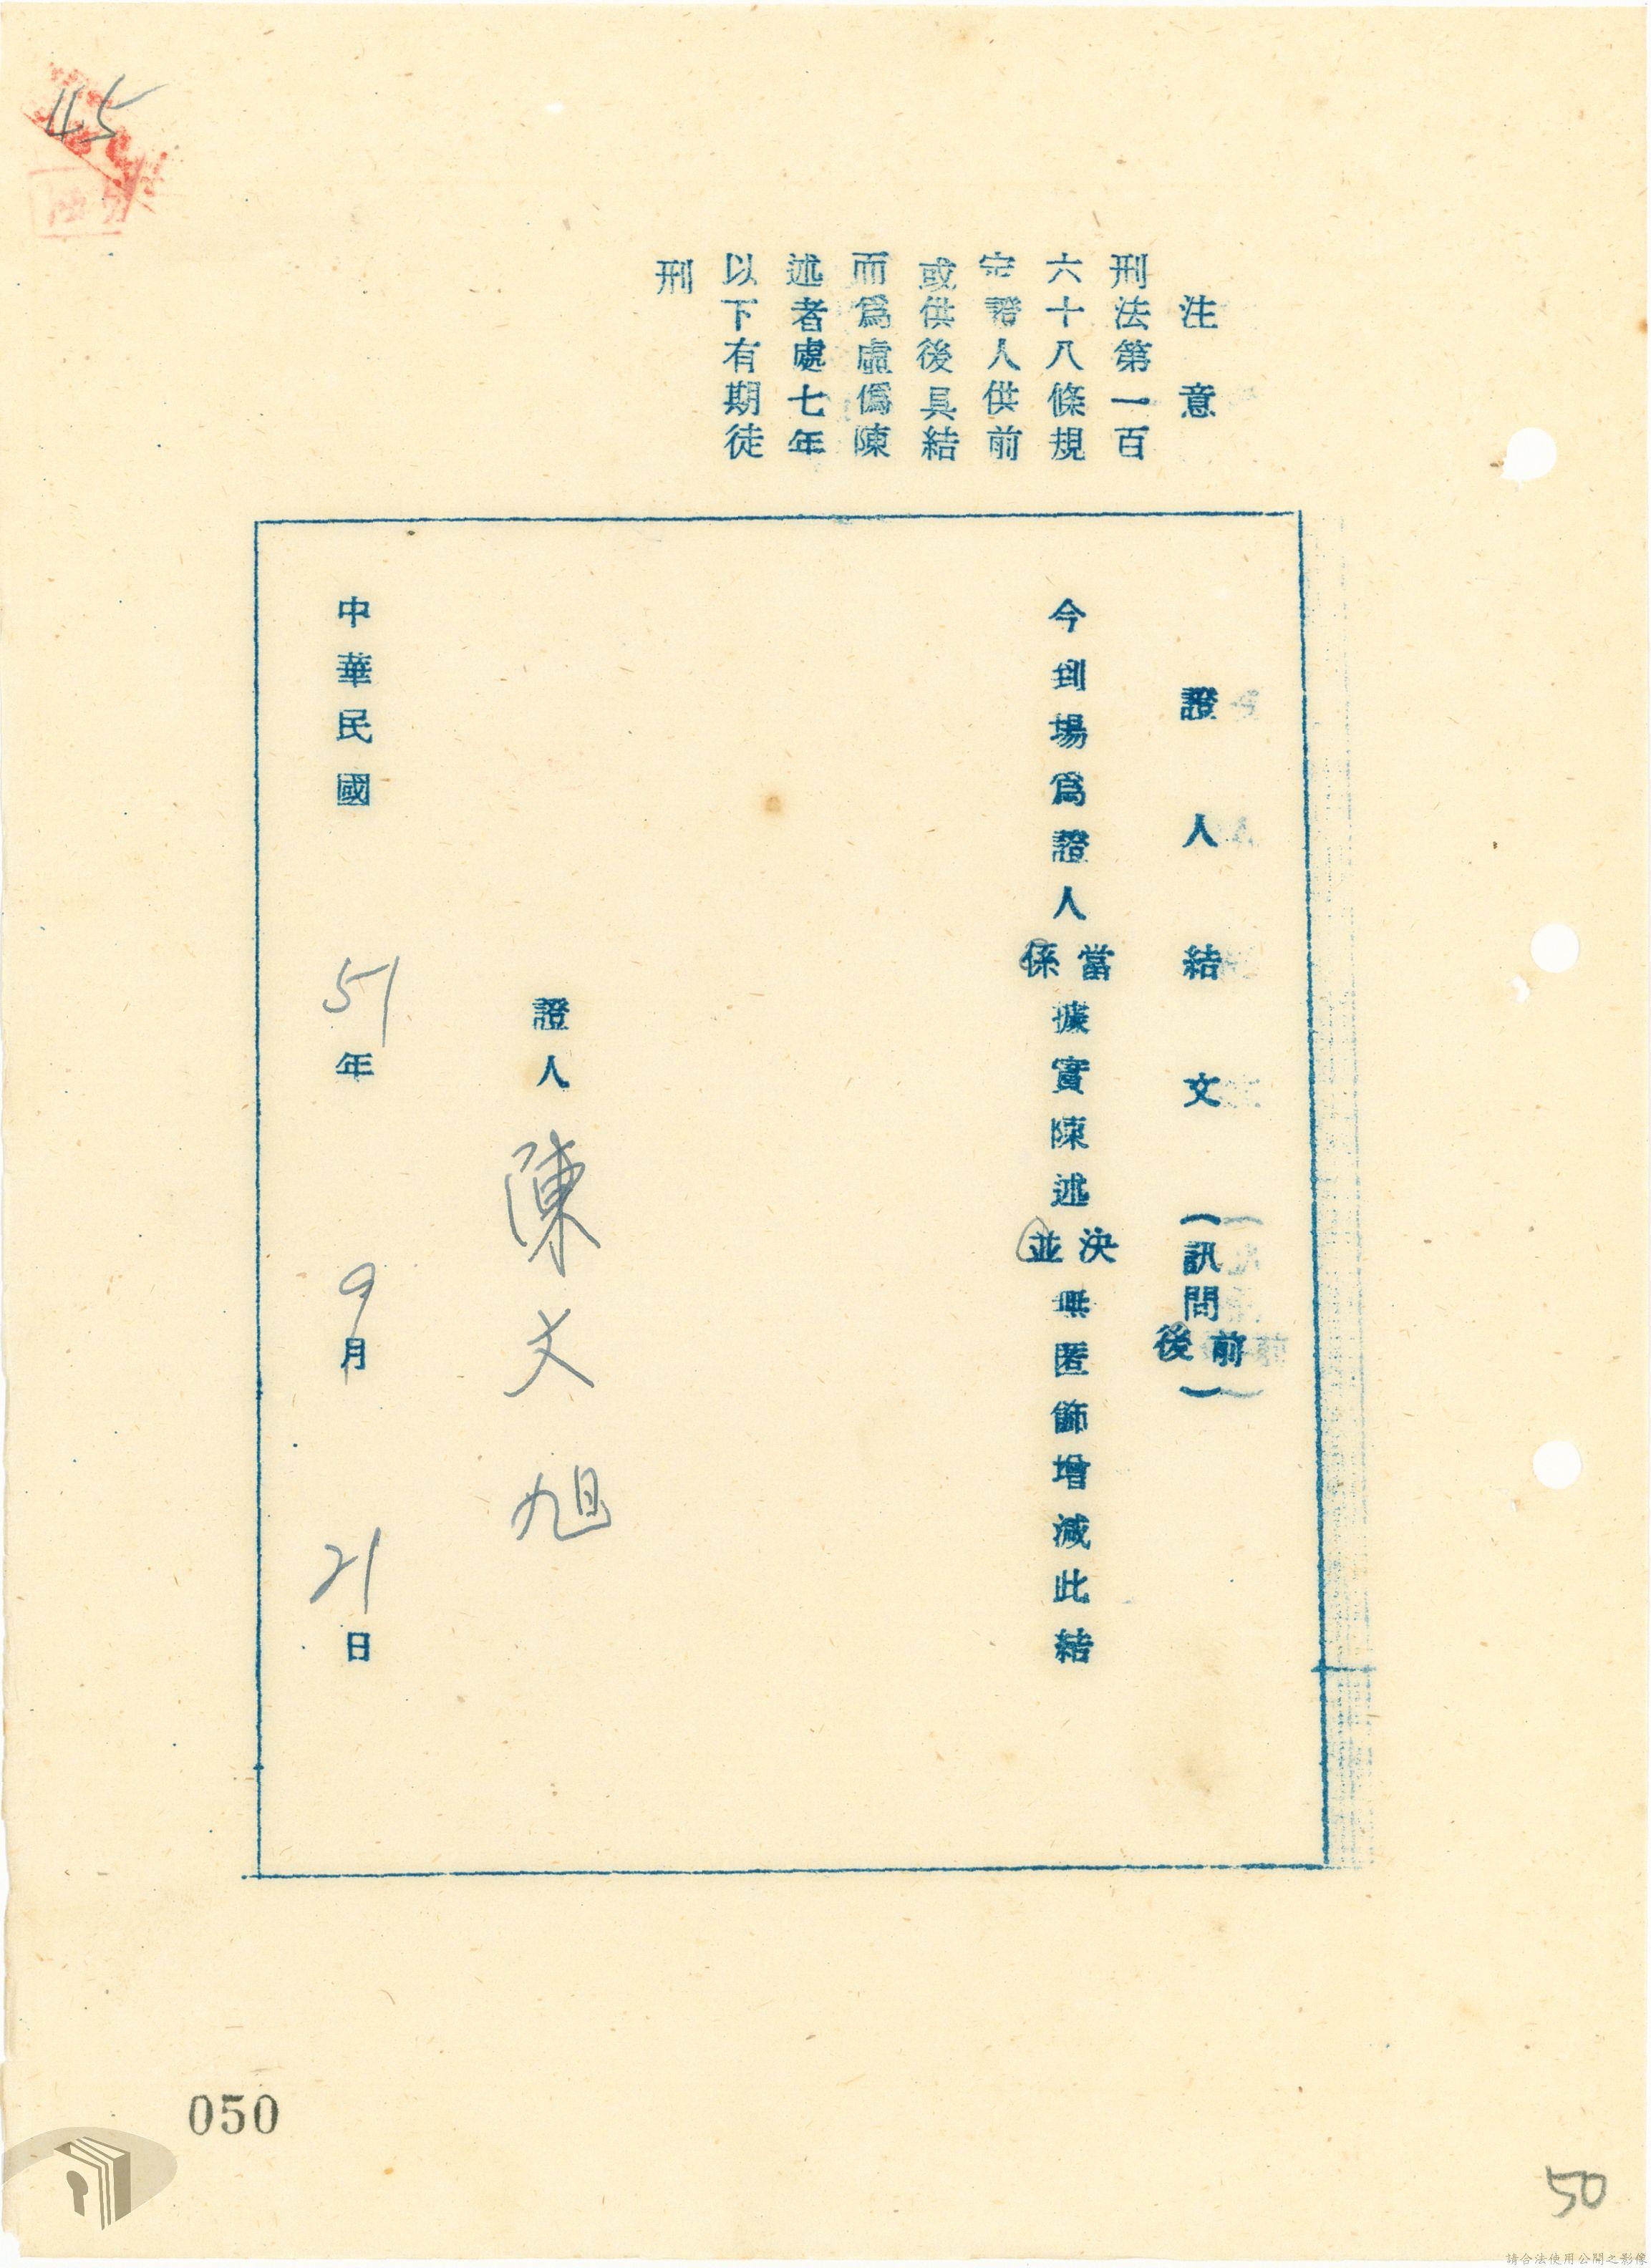 注意
刑法第一百
六十八條規
定證人供前
或供後具結
而為虛偽陳
述者處七年
以下有期徒
刑
證人結文(訊問前後)
今到場為證人當係據實陳述決並無匿飾增減此結
證人 陳文旭
中華民國 51年 9月 21日
45
050
50
請合法使用公開之影像